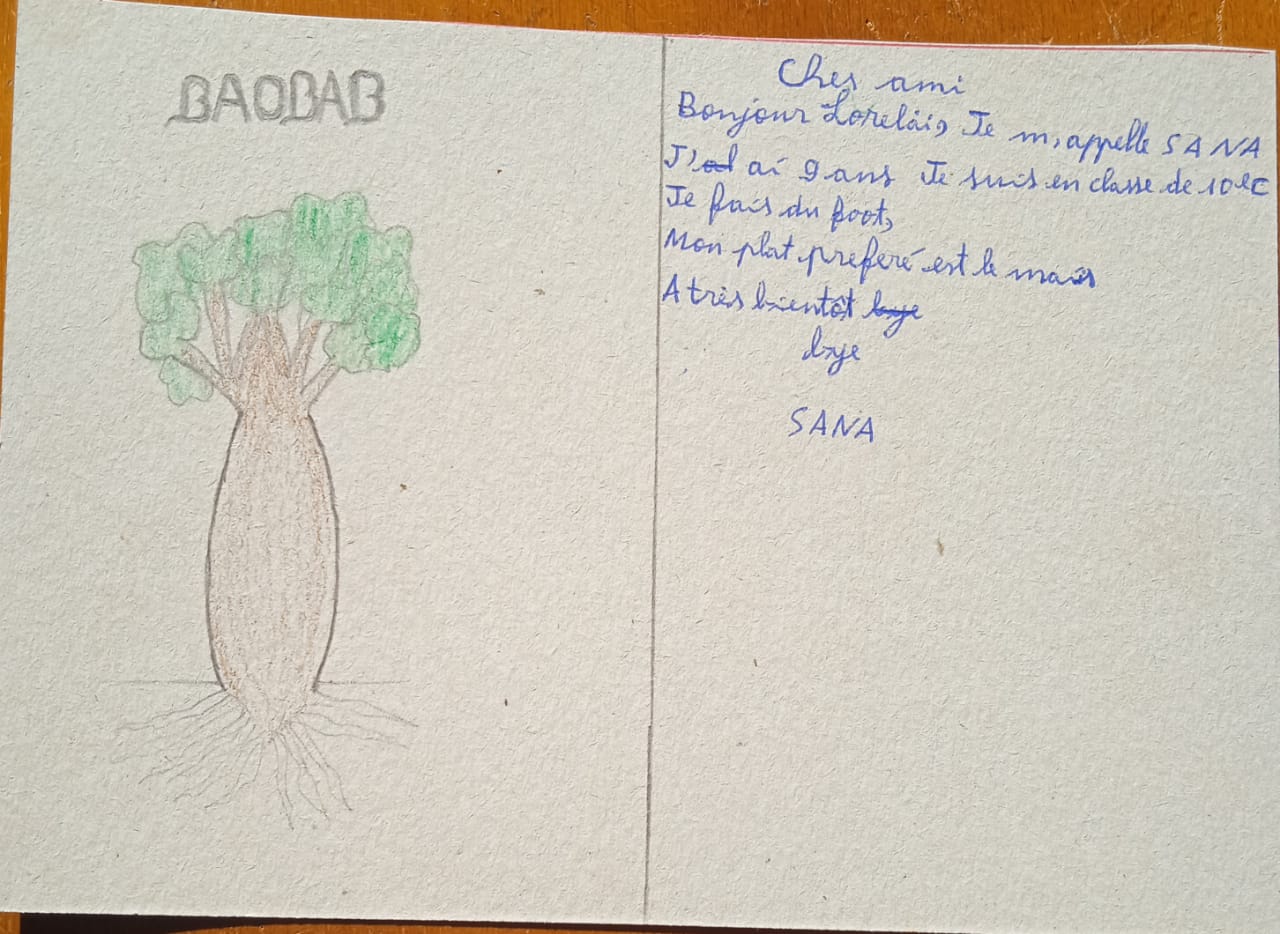 BAOBAB
Cher ami
Bonjour Lorelàis, Je m, appelle SANA
J' ai 9 ans Je suis en classe de 10è C
Je fais du foot,
Mon plat preferé est le maïs
A très bientôt bye
bye
SANA